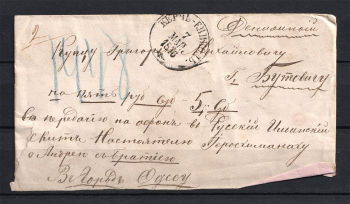 Денежный
КЕРЧЬ-ЕНИКОЛЬ
7
МАР
Купцу Григорію Михайловичу
г. Бутовичу
на пять руб
5
въ передачу на Афонъ въ Русскій Ильинскій
Скитъ Настоятелю Іеросхимонаху
о Андрею съ братіею
Въ Городъ Одессу